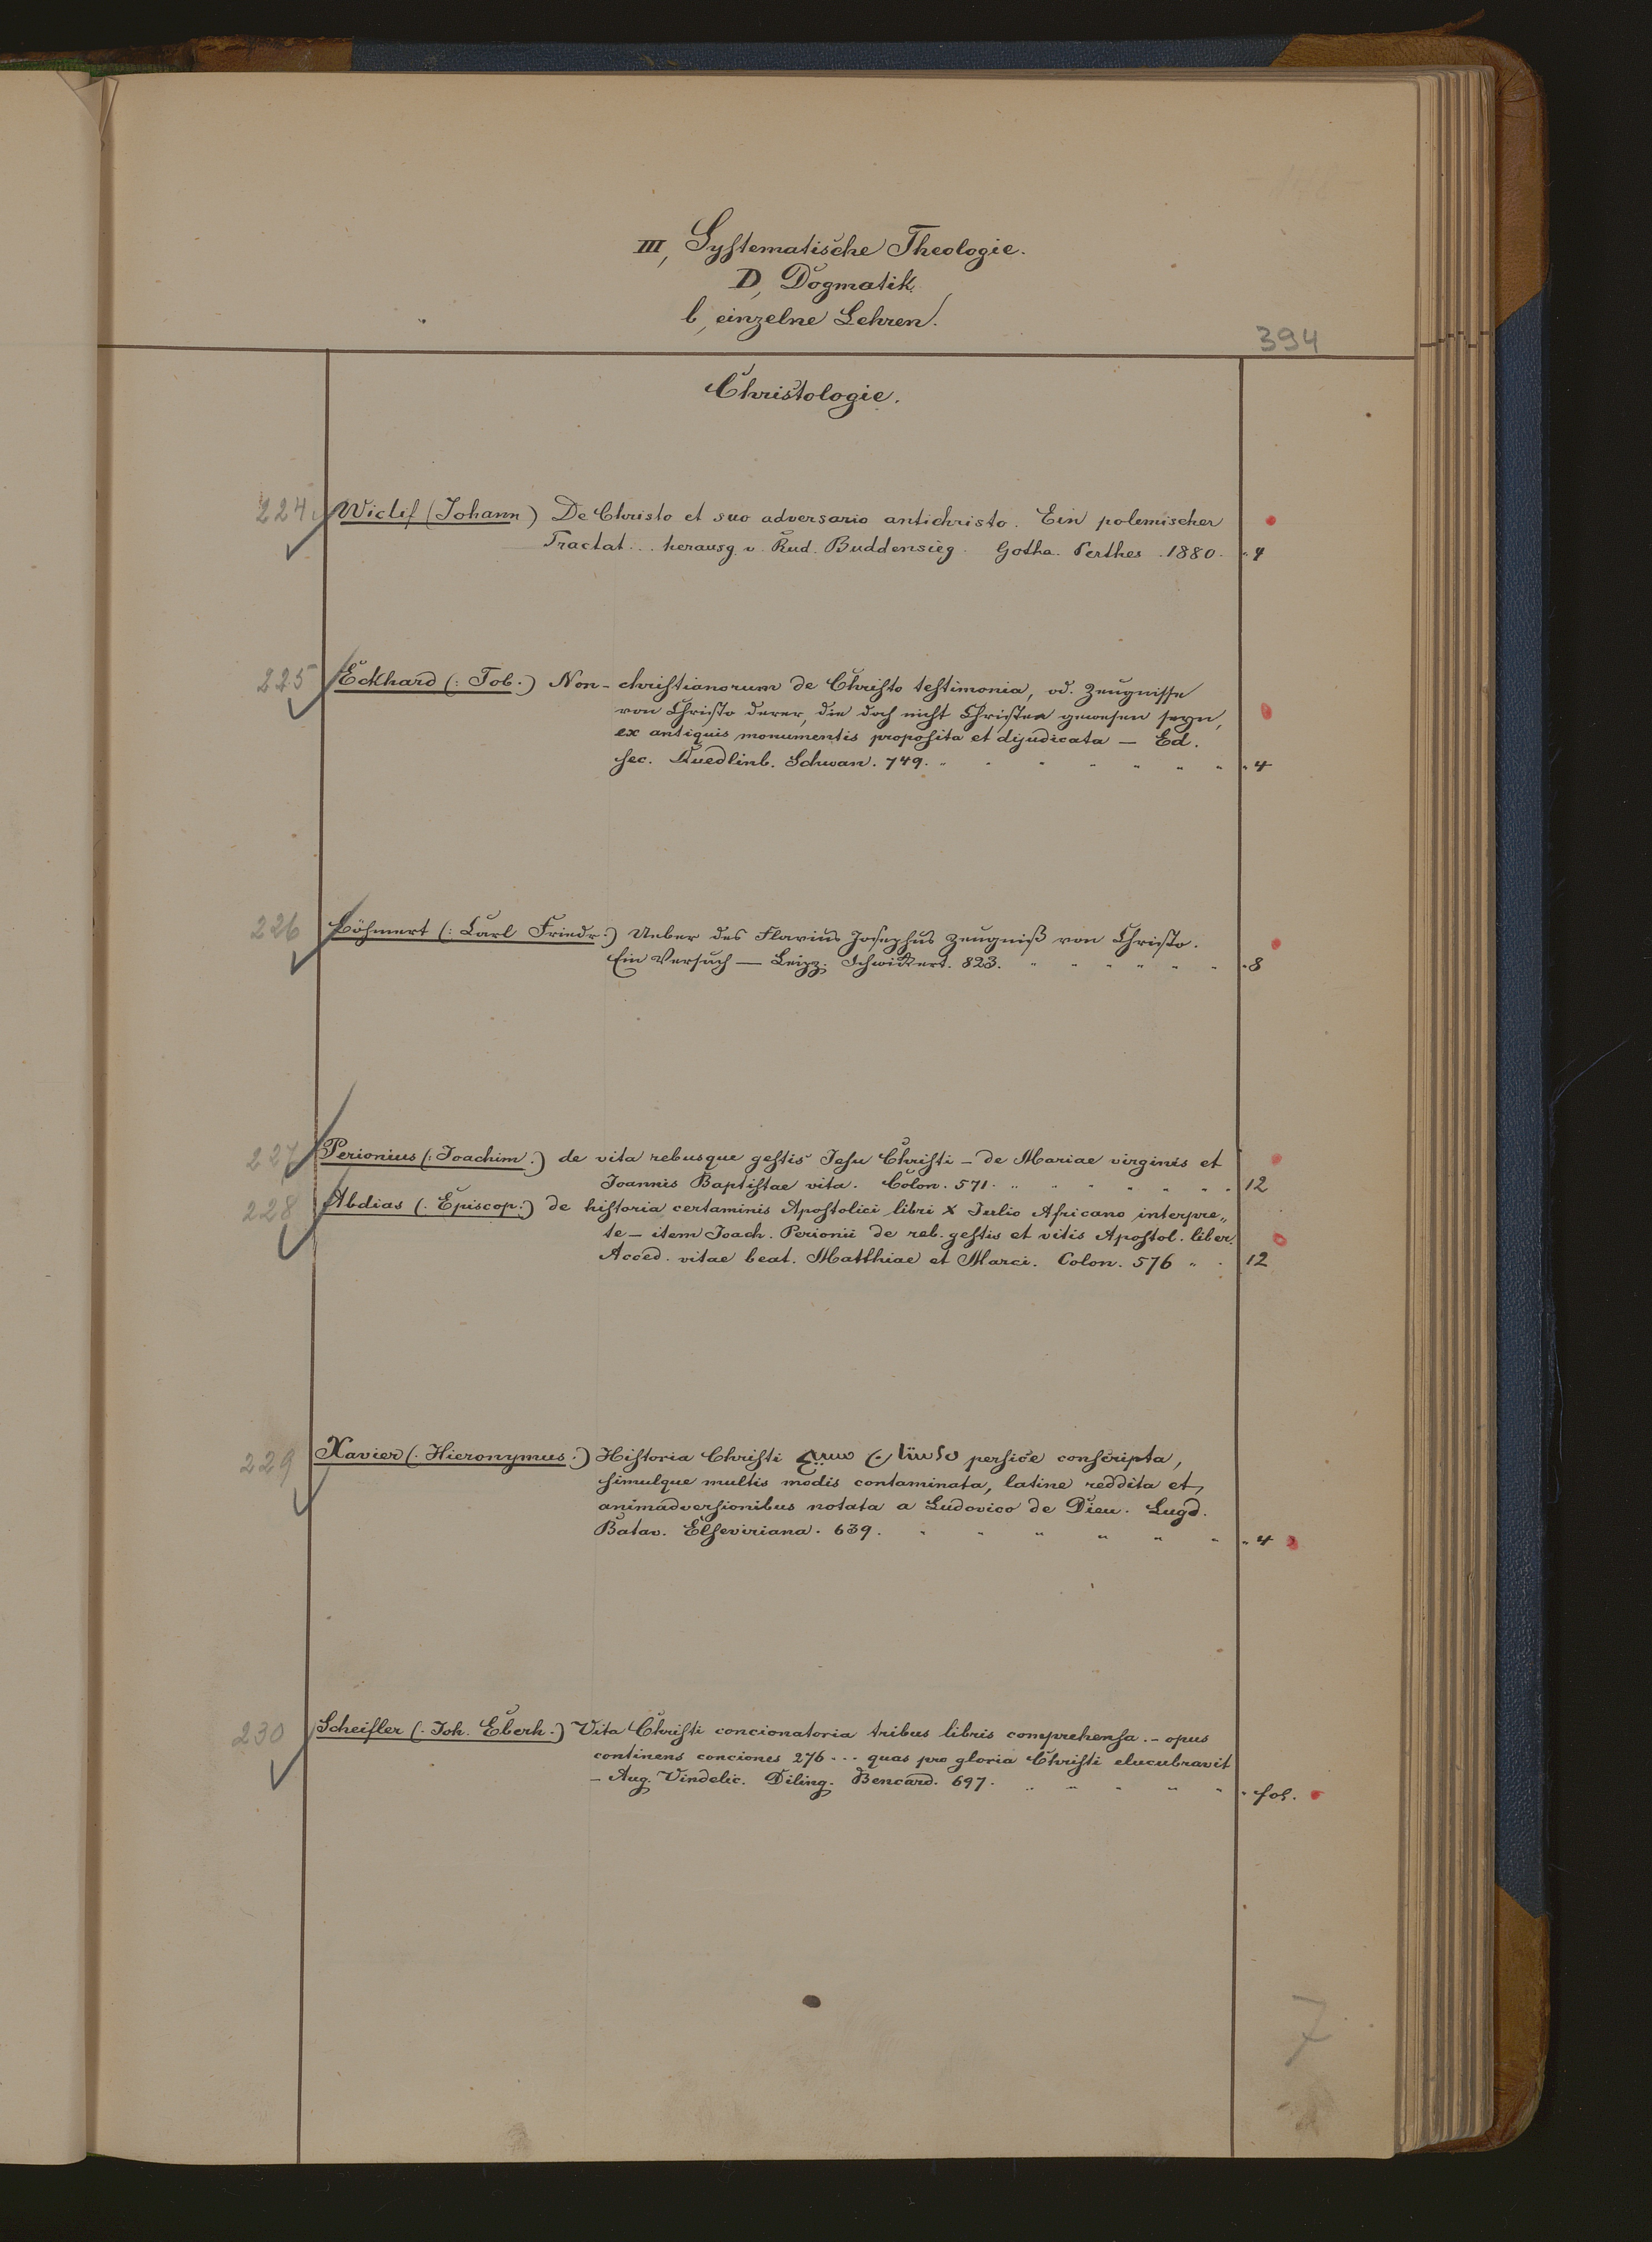 III, Systematische Theologie.
D, Dogmatik.
b, einzelne Lehren.
394
Christologie.
224. Wiclif (Johann) De Christo et suo adversario antichristo. Ein polemischer
Tractat... herausg. v. Rud. Buddensieg. Gotha. Perthes. 1880. " 4
225 Eckhard (: Tob. :) Non-christianorum de Christo testimonia, od. Zeugnisse
von Christo derer, die doch nicht Christen gewesen seyn,
ex antiquis monumentis proposita et dijudicata — Ed.
sec. Quedlinb. Schwan. 749. " " " " " " " " 4
226 Böhmert (: Carl Friedr. :) Ueber des Flavius Josephus Zeugniß von Christo.
Ein Versuch — Leipz. Schwickert. 823. " " " " " " " 8
227 Perionius (: Joachim :) de vita rebusque gestis Jesu Christi – de Mariae virginis et
Joannis Baptistae vita. Colon. 571. " " " " " " " 12
228 Abdias (: Episcop. :) de historia certaminis Apostolici libri X Julio Africano interpre„
te – item Joach. Perionii de reb. gestis et vitis Apostol. liber.
Acced. vitae beat. Matthiae et Marci. Colon. 576 " " 12
229 Xavier (: Hieronymus :) Historia Christi داستان مسيح persice conscripta,
simulque multis modis contaminata, latine reddita et
animadversionibus notata a Ludovico de Dieu. Lugd.
Batav. Elseviriana. 639. " " " " " " " 4
230 Scheifler (: Joh. Eberh. :) Vita Christi concionatoria tribus libris comprehensa. – opus
continens conciones 276 ... quas pro gloria Christi elucubravit
– Aug. Vindelic. Diling. Bencard. 697. " " " " " " fol.
7